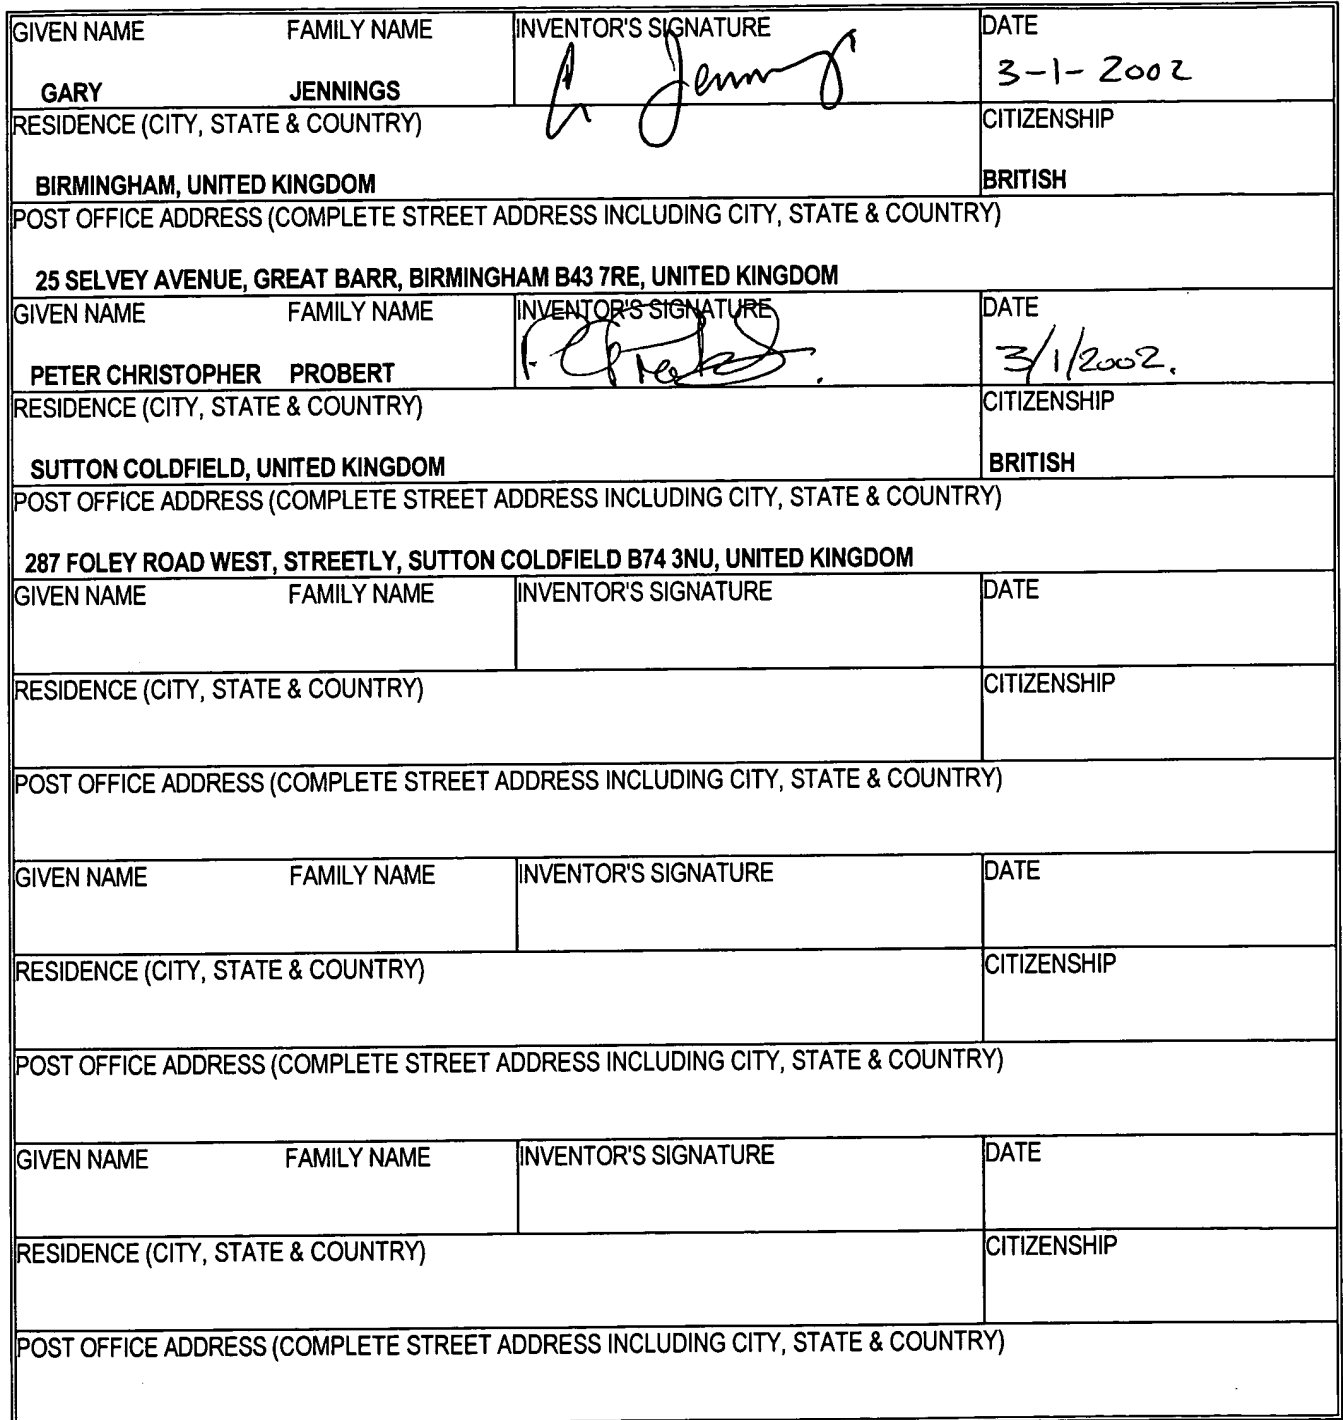 GIVEN NAME FAMILY NAME INVENTOR'S SIGNATURE DATE
G Jennings 3-1-2002
GARY JENNINGS
RESIDENCE (CITY, STATE & COUNTRY) CITIZENSHIP
BIRMINGHAM, UNITED KINGDOM BRITISH
POST OFFICE ADDRESS (COMPLETE STREET ADDRESS INCLUDING CITY, STATE & COUNTRY)
25 SELVEY AVENUE, GREAT BARR, BIRMINGHAM B43 7RE, UNITED KINGDOM
GIVEN NAME FAMILY NAME INVENTOR'S SIGNATURE DATE
3/1/2002.
PETER CHRISTOPHER PROBERT
RESIDENCE (CITY, STATE & COUNTRY) CITIZENSHIP
SUTTON COLDFIELD, UNITED KINGDOM BRITISH
POST OFFICE ADDRESS (COMPLETE STREET ADDRESS INCLUDING CITY, STATE & COUNTRY)
287 FOLEY ROAD WEST, STREETLY, SUTTON COLDFIELD B74 3NU, UNITED KINGDOM
GIVEN NAME FAMILY NAME INVENTOR'S SIGNATURE DATE
RESIDENCE (CITY, STATE & COUNTRY) CITIZENSHIP
POST OFFICE ADDRESS (COMPLETE STREET ADDRESS INCLUDING CITY, STATE & COUNTRY)
GIVEN NAME FAMILY NAME INVENTOR'S SIGNATURE DATE
RESIDENCE (CITY, STATE & COUNTRY) CITIZENSHIP
POST OFFICE ADDRESS (COMPLETE STREET ADDRESS INCLUDING CITY, STATE & COUNTRY)
GIVEN NAME FAMILY NAME INVENTOR'S SIGNATURE DATE
RESIDENCE (CITY, STATE & COUNTRY) CITIZENSHIP
POST OFFICE ADDRESS (COMPLETE STREET ADDRESS INCLUDING CITY, STATE & COUNTRY)